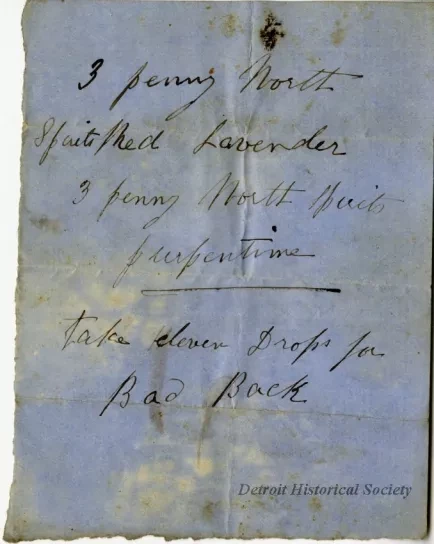 3 penny North
Spirits Red Lavender
3 penny North Spirits
purpentine
Take eleven Drops for
Bad Back
Detroit Historical Society